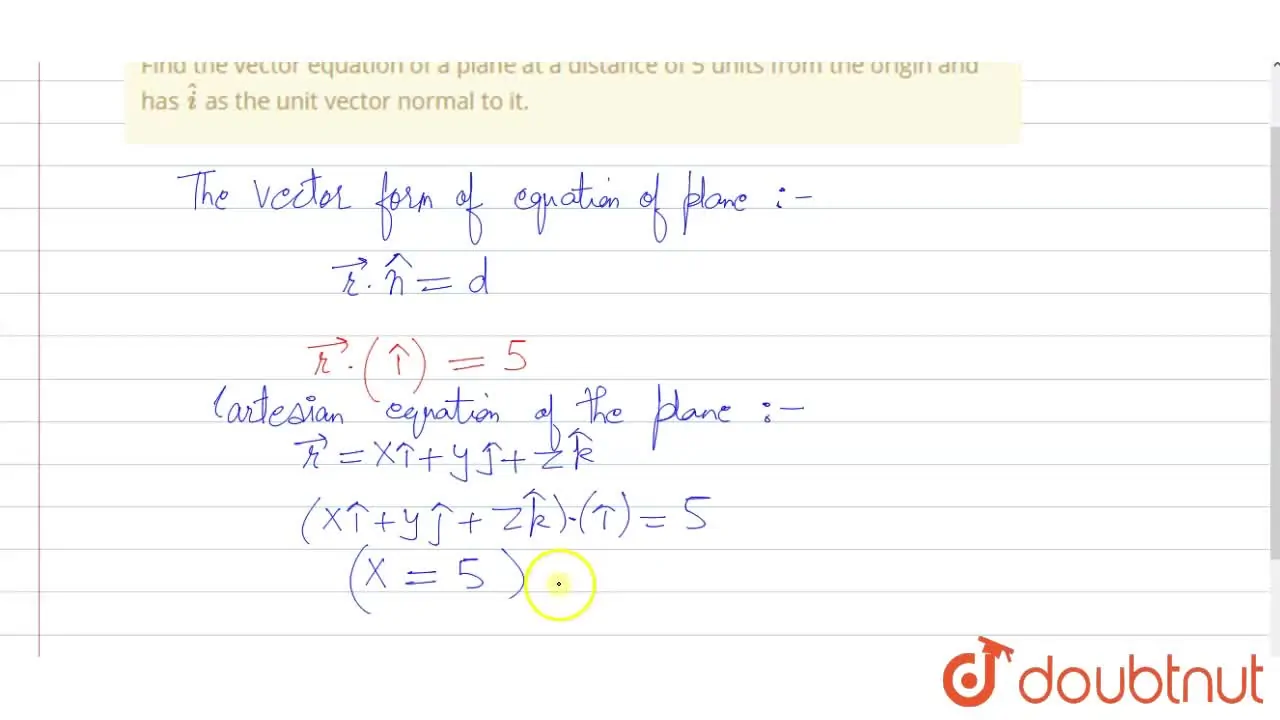 Find the vector equation of a plane at a distance of 5 units from the origin and
has î as the unit vector normal to it.
The vector form of equation of plane :-
r⃗. n̂ = d
r⃗. (î) = 5
Cartesian equation of the plane :-
r⃗ = xî + yĵ + zk̂
(xî + yĵ + zk̂).(î) = 5
(x = 5)
doubtnut